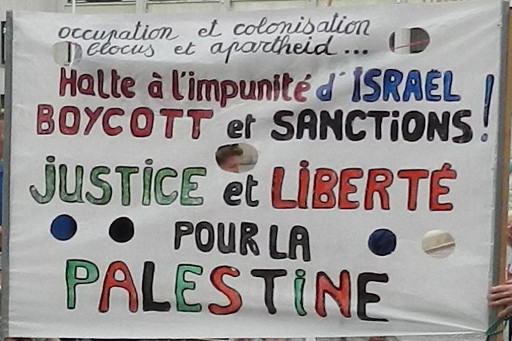 occupation et colonisation
blocus et apartheid...
Halte à l'impunité d'ISRAËL
BOYCOTT et SANCTIONS!
JUSTICE et LIBERTÉ
POUR LA
PALESTINE